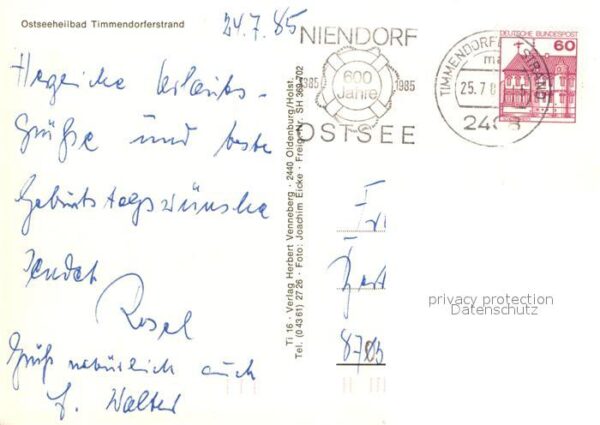 Ostseeheilbad Timmendorferstrand
24.7.85
Herzliche Urlaubs-
grüße und beste
Geburtstagswünsche
sendet
Rosel
Grüß natürlich auch
Walter
NIENDORF
1385 600 Jahre 1985
OSTSEE
TIMMENDORFER STRAND
25.7.8
2408
DEUTSCHE BUNDESPOST
60
Ti 16 · Verlag Herbert Venneberg · 2440 Oldenburg/Holst.
Tel. (0 43 61) 27 26 · Foto: Joachim Eicke · Freig.-Nr. SH 369-702
privacy protection
Datenschutz